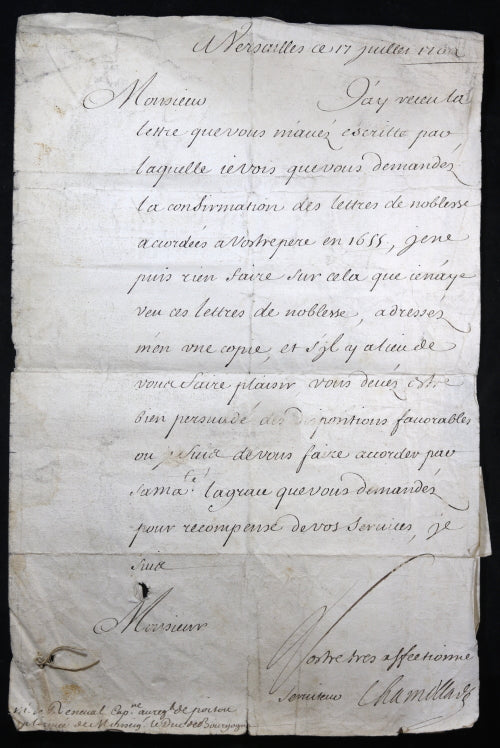 A Versailles ce 17 juillet
Monsieur J'ay receu la
lettre que vous m'avez escritte par
laquelle ie vois que vous demandez
la confirmation des lettres de noblesse
accordées a Vostre pere en 1655, je ne
puis rien faire sur cela que ie n'aye
veu ces lettres de noblesse, adressez
m'en une copie, et s'il y a lieu de
vous faire plaisir vous devez estre
bien persuadé des dispositions favorables
ou je suis de vous faire accorder par
sa ma.té la grace que vous demandez
pour recompense de vos services, je
suis
Monsieur
Vostre tres affectionné
serviteur Chamillart
Cap.ne au reg.t de poitou
de Monseig. le Duc de Bourgogne